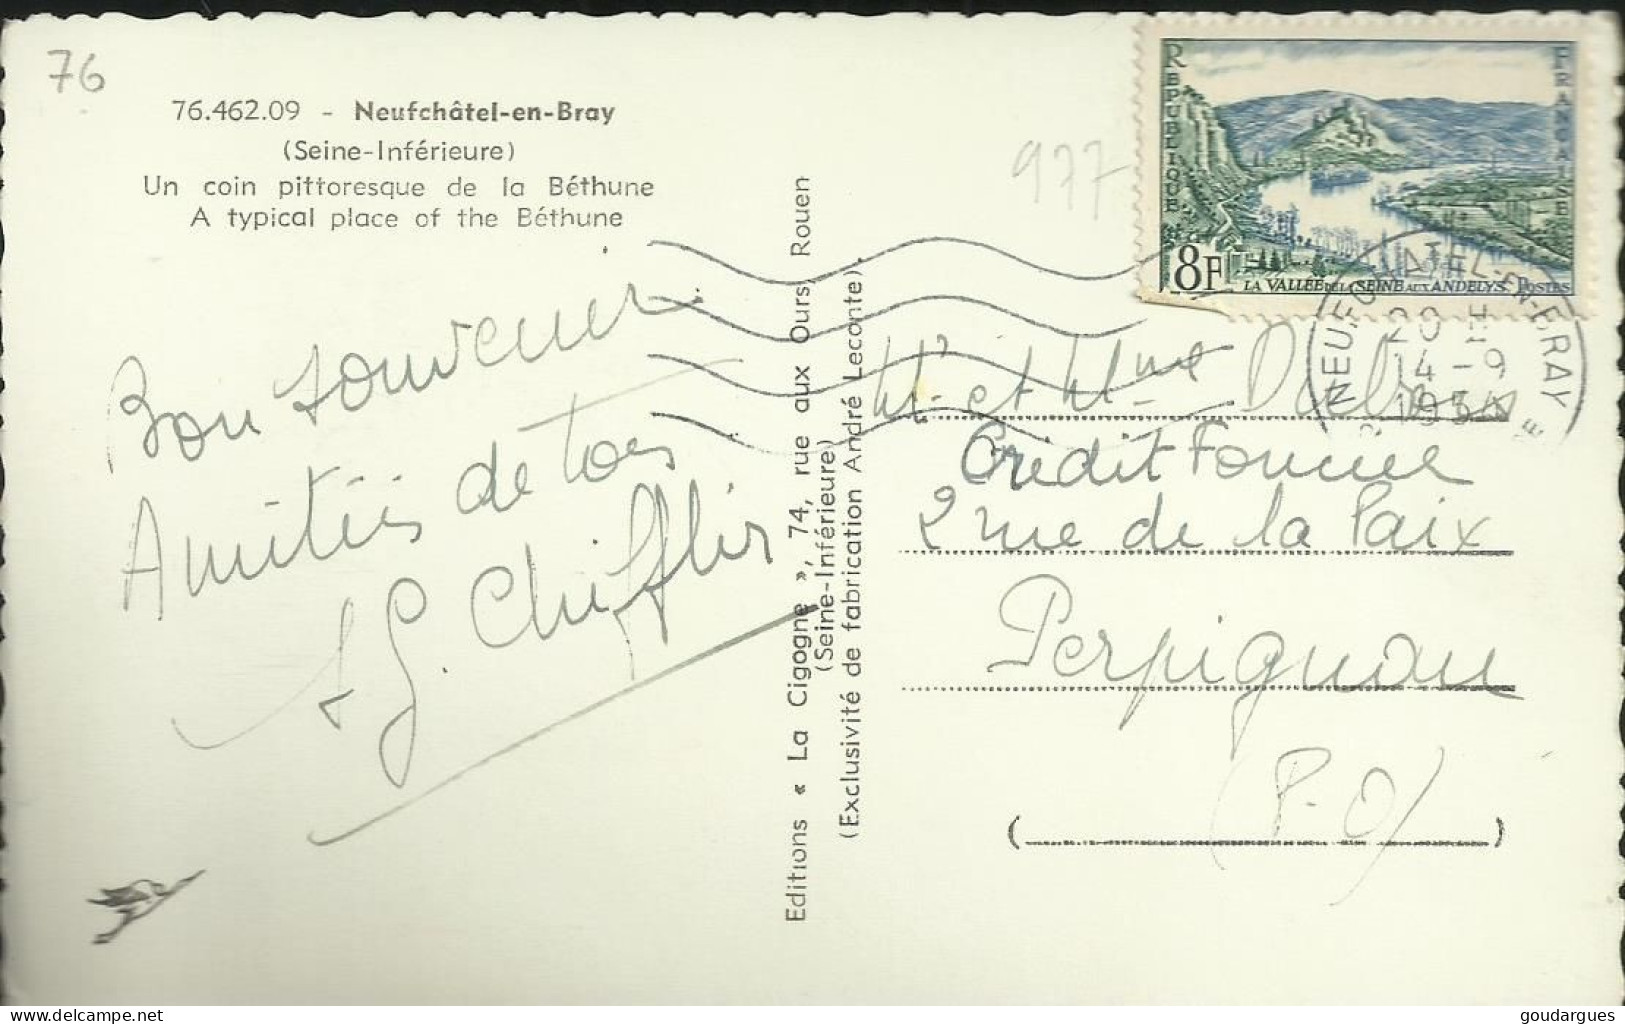 76
76.462.09 - Neufchâtel-en-Bray
(Seine-Inférieure)
Un coin pittoresque de la Béthune
A typical place of the Béthune
Bon souvenir
Amitiés de tous
G. Chifflir
Editions « La Cigogne », 74, rue aux Ours, Rouen
(Seine-Inférieure)
(Exclusivité de fabrication André Leconte).
977
REPUBLIQUE
FRANCAISE
8F
LA VALLEE DE LA SEINE AUX ANDELYS POSTES
NEUFCHATEL-EN-BRAY
20 H
14 - 9
1954
Mr et Mme
Crédit Foncier
2 rue de la Paix
Perpignan
(P-O)
delcampe.net
goudargues